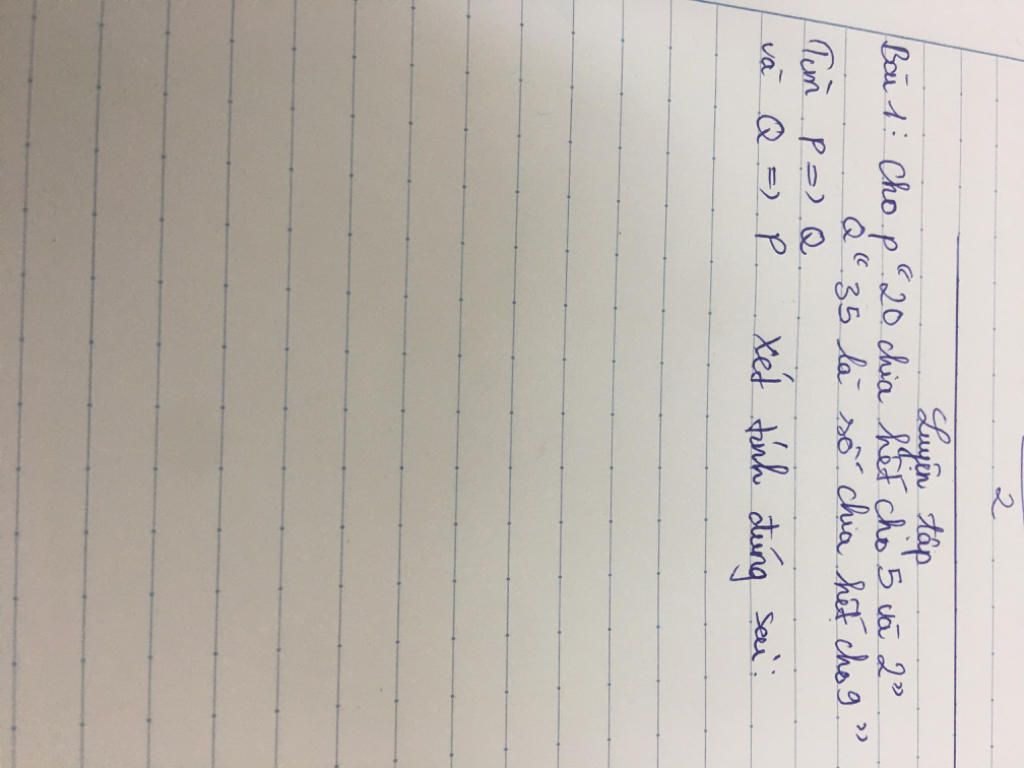 2
Luyện tập
Bài 1: Cho P "20 chia hết cho 5 và 2"
Q "35 là số chia hết cho 9"
Tìm P => Q
và Q => P xét tính đúng sai.